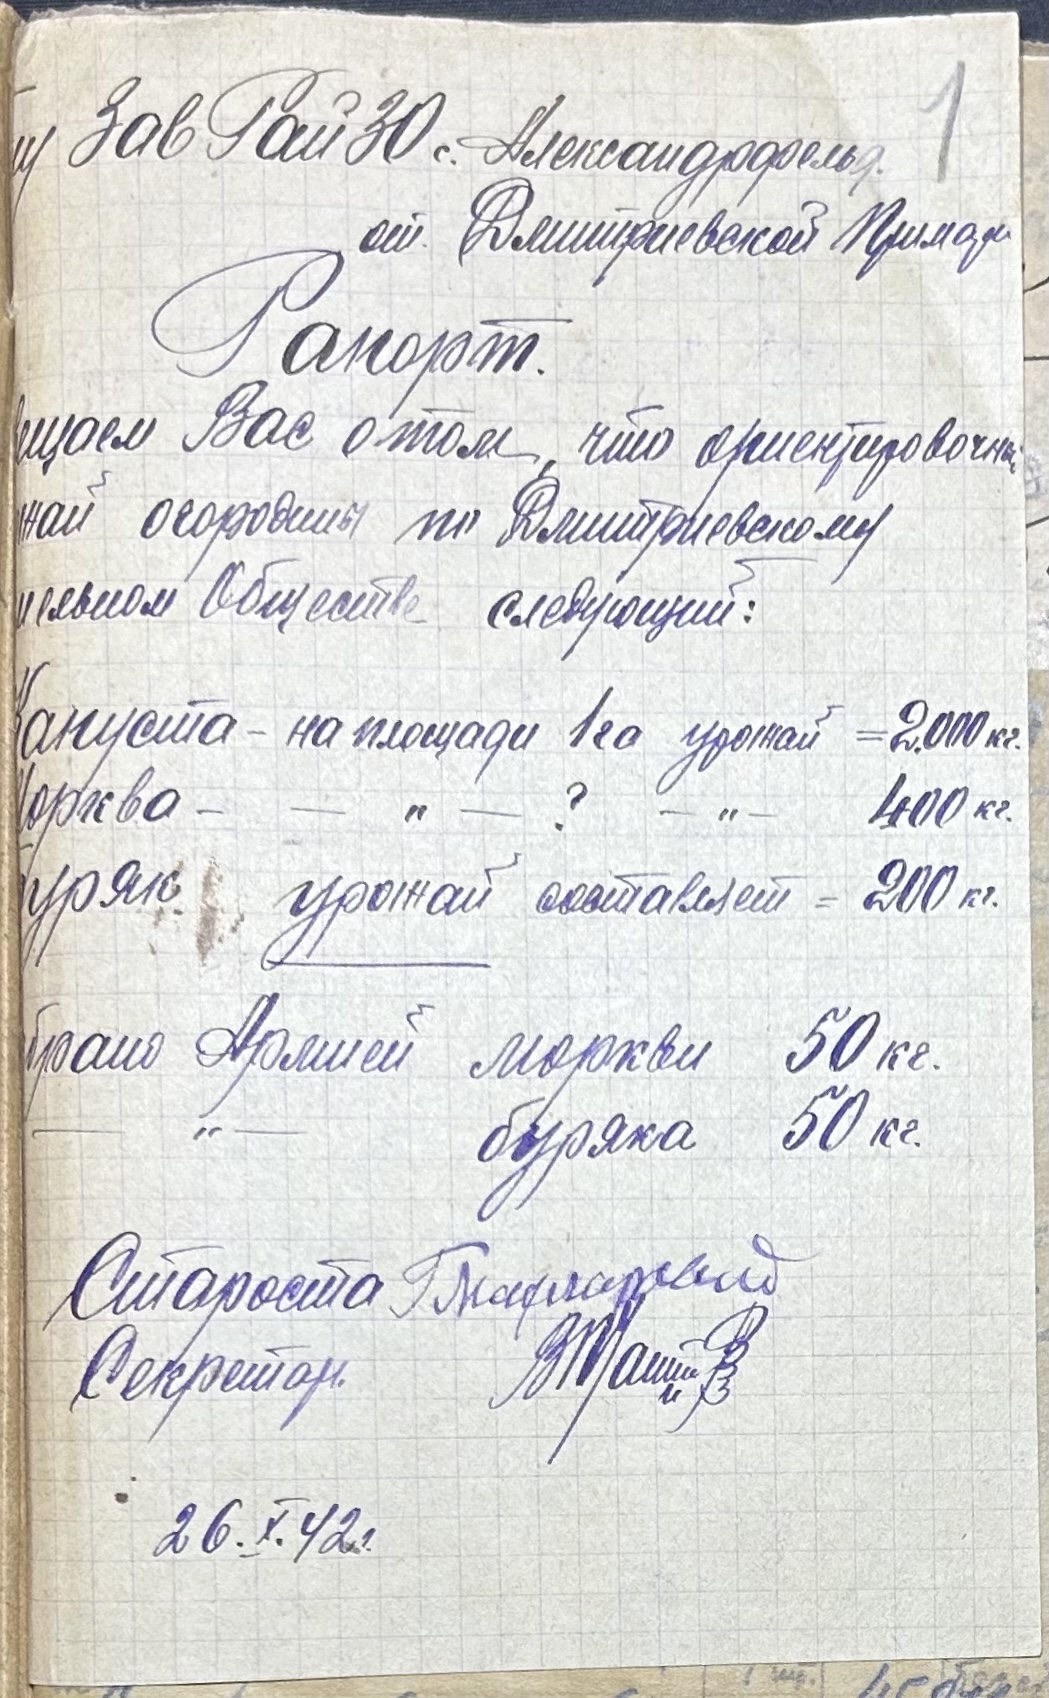 1
Зав РайЗО с. Александрофельд.
от. Дмитриевской Примари
Рапорт.
ещаем Вас о том, что ориентировочный
жай огородины по Дмитриевскому
тельном Обществе следующий:
Капуста - на площади 1 га урожай = 2.000 кг.
Морква - — „ — ? — „ — 400 кг.
Буряк урожай составляет = 200 кг.
брано Армией моркви 50 кг.
— „ — буряка 50 кг.
Староста
Секретарь.
26.X.42 г.